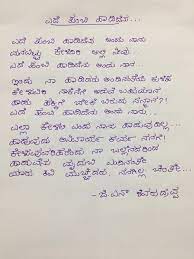 ಎದೆ ತುಂಬಿ ಹಾಡಿದೆನು...
ಎದೆ ತುಂಬಿ ಹಾಡಿದೆನು ಅಂದು ನಾನು
ಮನವಿಟ್ಟು ಕೇಳಿದಿರಿ ಅಲ್ಲಿ ನೀವು
ಎದೆ ತುಂಬಿ ಹಾಡಿದೆನು ಅಂದು ನಾನು...
ಇಂದು ನಾ ಹಾಡಿದರು ಅಂದಿನಂತೆಯೆ ಕುಳಿತು
ಕೇಳುವಿರಿ ಸಾಕೆನಗೆ ಅದುವೆ ಬಹುಮಾನ
ಹಾಡು ಹಕ್ಕಿಗೆ ಬೇಕೆ ಬಿರುದು ಸನ್ಮಾನ?!
ಎದೆ ತುಂಬಿ ಹಾಡಿದೆನು ಅಂದು ನಾನು...
ಎಲ್ಲಾ ಕೇಳಲಿ ಎಂದು ನಾನು ಹಾಡುವುದಿಲ್ಲ...
ಹಾಡುವುದು ಅನಿವಾರ್ಯ ಕರ್ಮ ನನಗೆ!
ಕೇಳುವವರಿಹರೆಂದು ನಾ ಬಲ್ಲೆನದರಿಂದ
ಹಾಡುವೆನು ಮೈದುಂಬಿ ಎಂದಿನಂತೆ
ಯಾರು ಕಿವಿ ಮುಚ್ಚಿದರು ನನಗಿಲ್ಲ ಚಿಂತೆ...
- ಜಿ.ಎಸ್ ಶಿವರುದ್ರಪ್ಪ